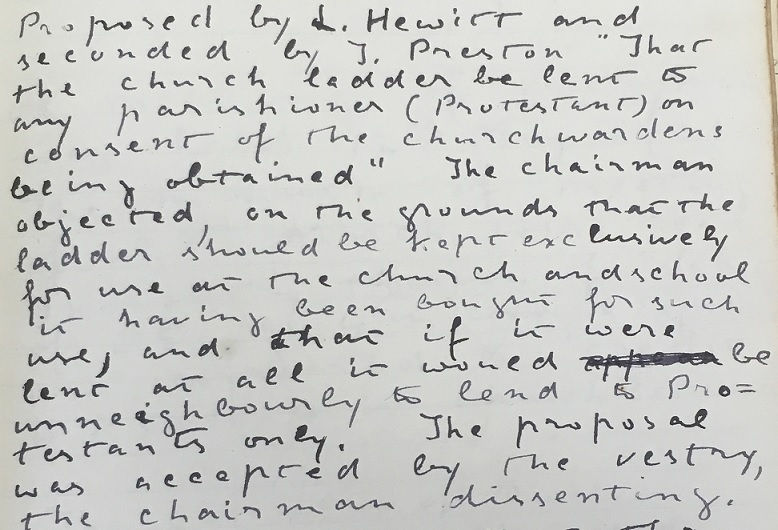 Proposed by L. Hewitt and
seconded by J. Preston "That
the church ladder be lent to
any parishioner (Protestant) on
consent of the churchwardens
being obtained" The chairman
objected, on the grounds that the
ladder should be kept exclusively
for use at the church and school
it having been bought for such
use, and that if it were
lent at all it would be
unneighbourly to lend to Pro=
testants only. The proposal
was accepted by the vestry,
the chairman dissenting.